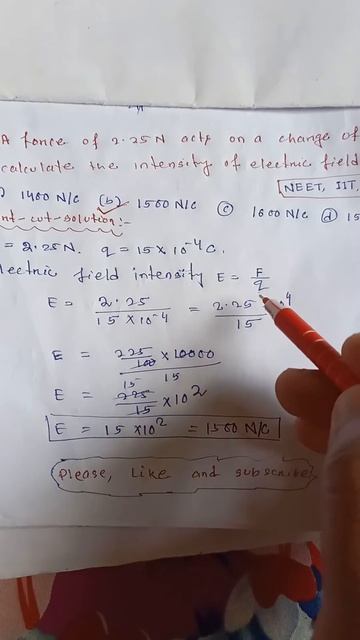 A force of 2.25N acts on a charge of
calculate the intensity of electric field
1400 N/C (b) 1500 N/C (c) 1600 N/C (d) 15
NEET, IIT
nt-cut-solution:-
= 2.25N. q = 15×10⁻⁴C.
lectric field intensity E = F/q
E = 2.25/15×10⁻⁴ = 2.25 4/15
E = 225/100 × 10000/15
15
E = 225/15 ×10²
E = 15 ×10² = 1500 N/C
Please, Like and subscribe